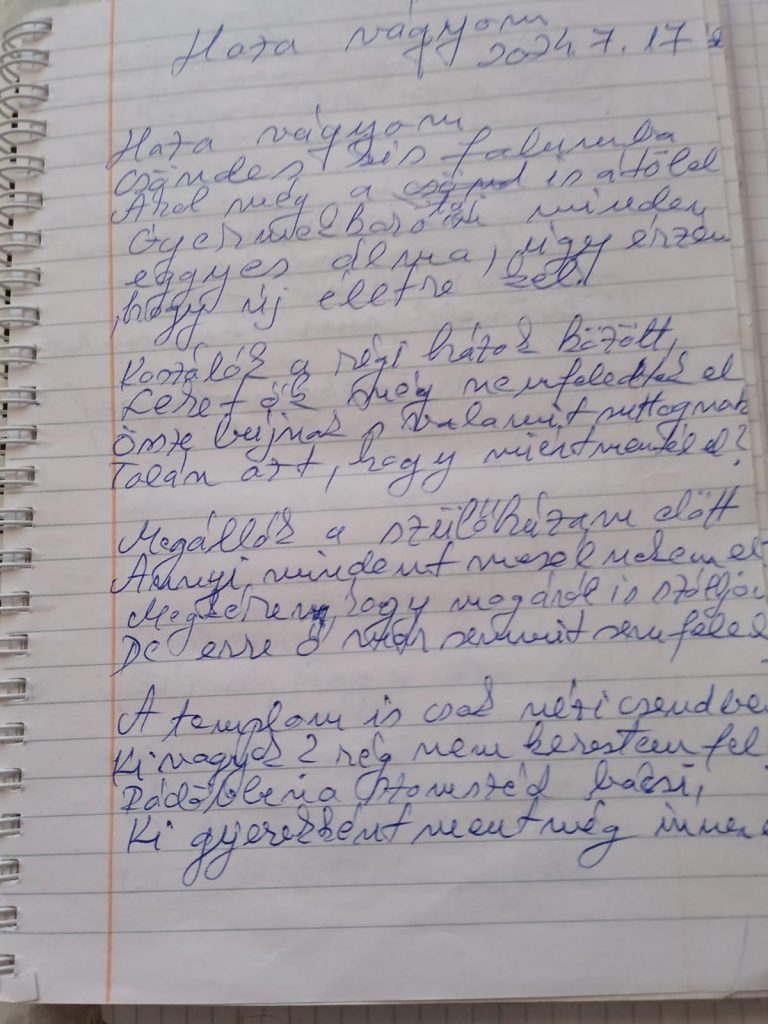 Haza vágyom
2024.7.17
Haza vágyom
csöndes kis falumba
Ahol még a is átölel
Gyermekkorom minden
eggyes álma, úgy érzem
hogy új életre kel.
Kószálok a régi házak között,
Lehet ők még nem feledtek el
Össze bújnak valamit suttognak
Talán azt, hogy miért mentél el?
Megállok a szülőházam előtt
Annyi mindent mesél nekem el
Megkérem, hogy magáról is szóljon
De erre ő már semmit sem felel
A templom is csak nézi csendben
Ki vagyok? rég nem kerestem fel
Rádöbben a szomszéd bácsi,
Ki gyerekként ment még innen